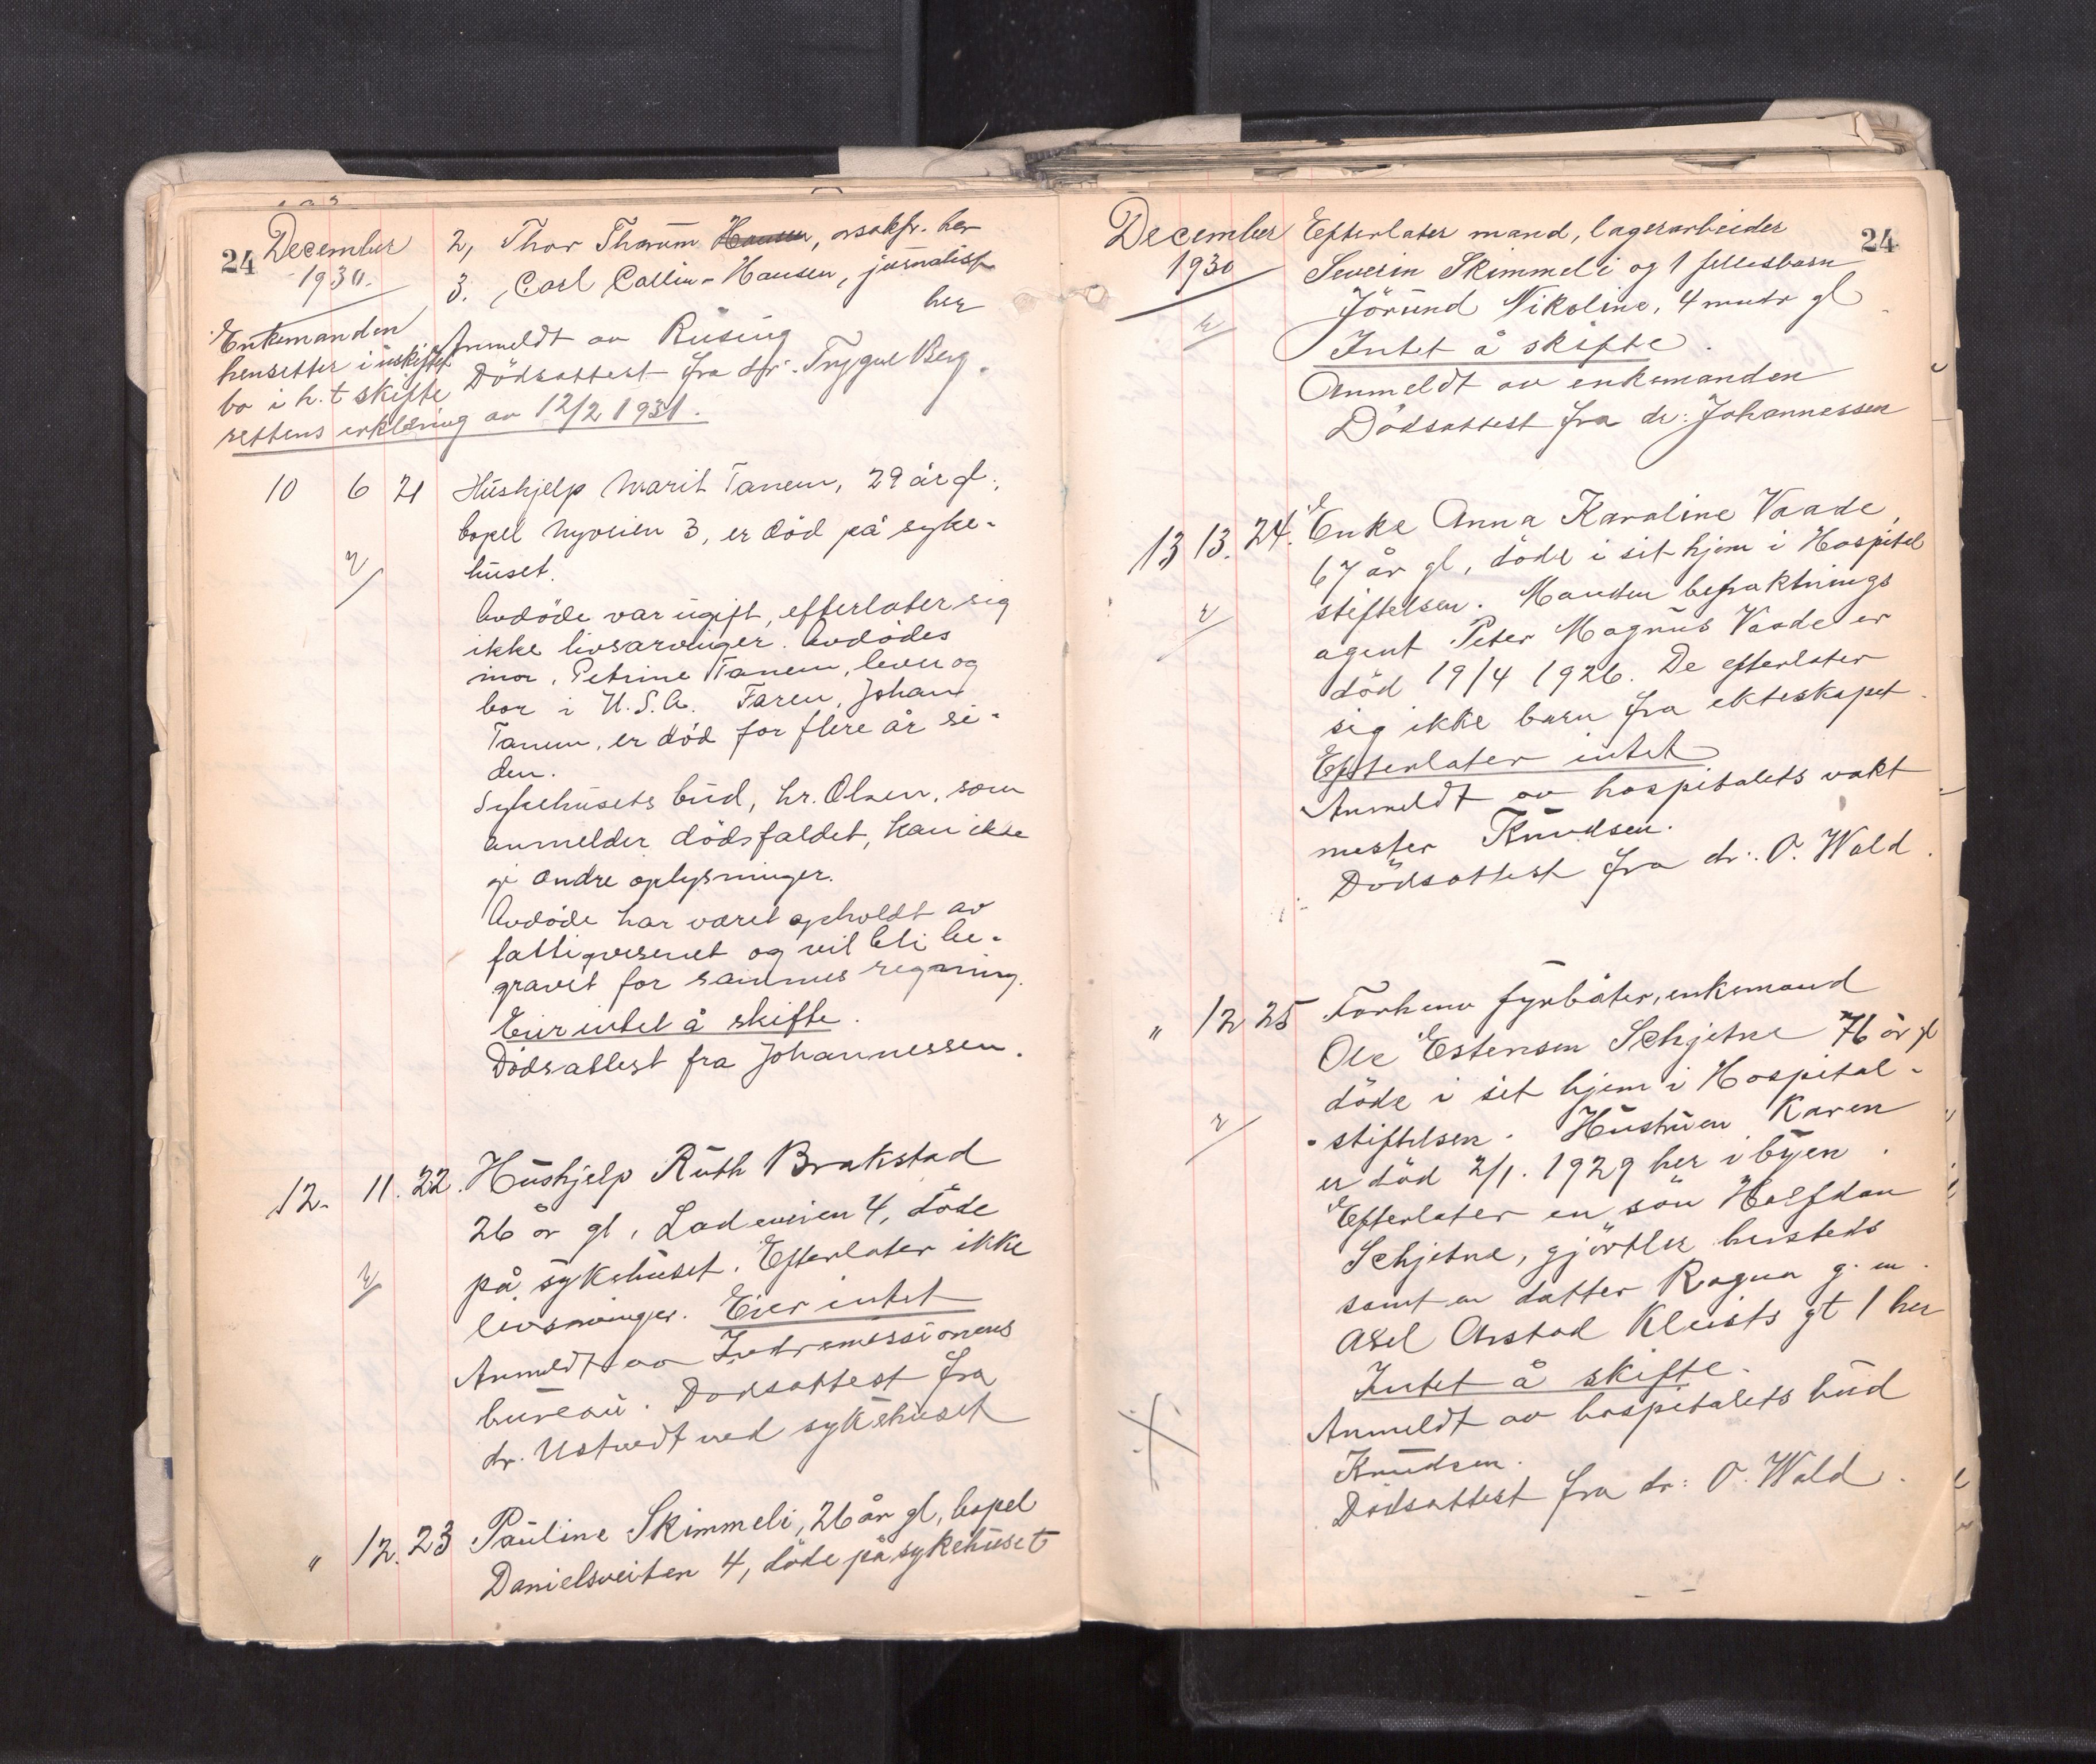 24 December
1930.
2, Thor Thorum Hansen, o.r.sakfr. her
3. Carl Collin-Hansen, journalist
her
Enkemanden
hensetter i uskiftet
bo i h. t skifte
rettens erklæring av 12/2 1931.
Anmeldt av Rüsing
Dödsattest fra dr. Trygve Berg.
10 6 21 Hushjelp Marit Tanem, 29 år gl.,
bopel Nyveien 3, er död på syke-
huset.
Avdöde var ugift, efterlater sig
ikke livsarvinger. Avdödes
mor, Petrine Tanem, lever og
bor i U.S.A. Faren, Johan
Tanem, er död for flere år si-
den.
Sykehusets bud, hr. Olsen, som
anmelder dödsfaldet, kan ikke
gi andre oplysninger.
Avdöde har været opholdt av
fattigvesenet og vil bli be-
gravet for sammes regning.
Eier intet å skifte.
Dödsattest fra Johannessen.
12. 11. 22. Hushjelp Ruth Brakstad
26 år gl, Ladeveien 4, döde
på sykehuset. Efterlater ikke
livsarvinger. Eier intet
Anmeldt av Indremissionens
bureau. Dödsattest fra
dr. Ustvedt ved sykehuset
" 12. 23 Pauline Skimmeli, 26 år gl, bopel
Danielsveiten 4, döde på sykehuset
December 24
1930
Efterlater mand, lagerarbeider
Severin Skimmeli og 1 fellesbarn
Jörund Nikoline, 4 mndr gl
Intet å skifte.
Anmeldt av enkemanden
Dödsattest fra dr: Johannessen
13 13. 24. Enke Anna Karoline Vaade,
67 år gl, döde i sit hjem i Hospitel
stiftelsen. Manden befraktnings
agent Peter Magnus Vaade er
död 19/4 1926. De efterlater
sig ikke barn fra ekteskapet.
Efterlater intet
Anmeldt av hospitalets vakt
mester Knudsen.
Dödsattest fra dr: O. Wald.
" 12 25 Forhenv fyrböter, enkemand
Ole Estensen Schjetne 76 år gl
döde i sit hjem i Hospital-
-stiftelsen. Hustruen Karen
er död 2/1. 1929 her i byen.
Efterlater en sön Halfdan
Schjetne, gjörtler hersteds
samt en datter Ragna g. m.
Axel Arstad Kleists gt 1 her
Intet å skifte.
Anmeldt av hospitalets bud
Knudsen.
Dödsattest fra dr: O. Wald.